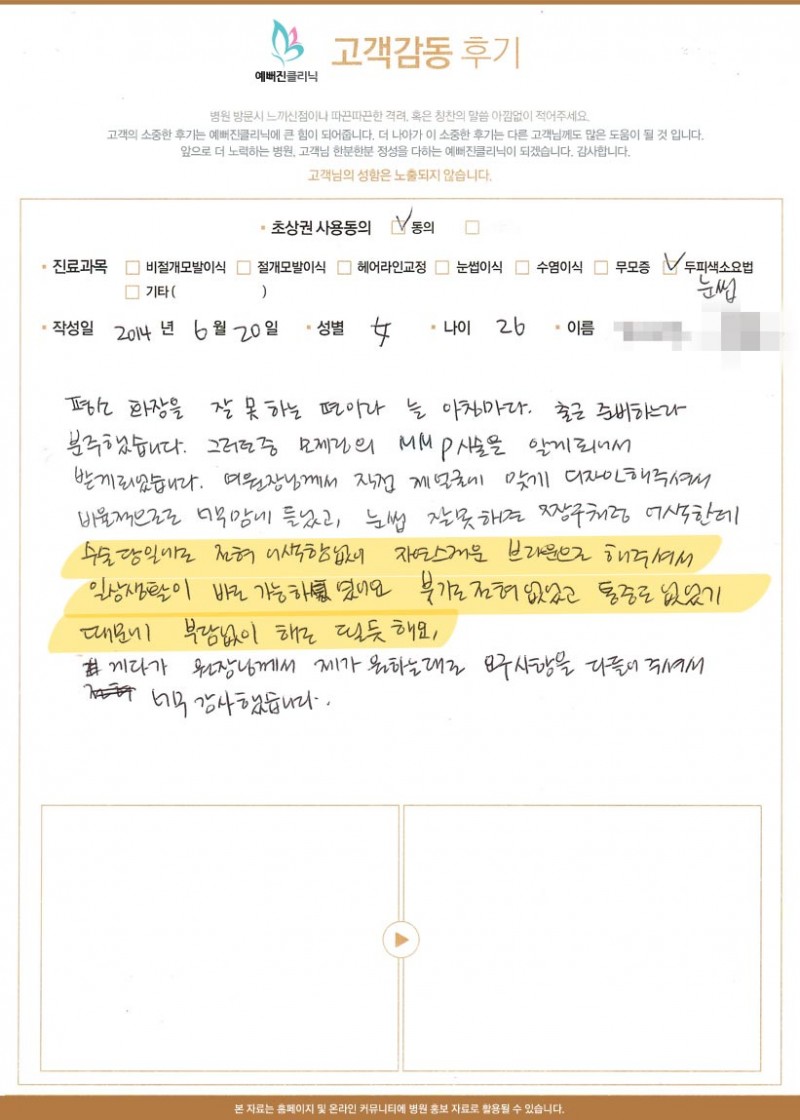 예뻐진클리닉
고객감동 후기
병원 방문시 느끼신점이나 따끈따끈한 격려, 혹은 칭찬의 말씀 아낌없이 적어주세요.
고객의 소중한 후기는 예뻐진클리닉에 큰 힘이 되어줍니다. 더 나아가 이 소중한 후기는 다른 고객님께도 많은 도움이 될 것 입니다.
앞으로 더 노력하는 병원, 고객님 한분한분 정성을 다하는 예뻐진클리닉이 되겠습니다. 감사합니다.
고객님의 성함은 노출되지 않습니다.
초상권 사용동의 동의
진료과목 비절개모발이식 절개모발이식 헤어라인교정 눈썹이식 수염이식 무모증 두피색소요법
기타( ) 눈썹
작성일 2014 년 6 월 20 일 성별 女 나이 26 이름
평소 화장을 잘 못 하는 편이라 늘 아침마다. 출근 준비하느라
분주했습니다. 그러던중 모제림의 MMP시술을 알게되어서
받게되었습니다. 여원장님께서 직접 제얼굴에 맞게 디자인해주셔서
비율적으로도 너무맘에 들었고, 눈썹 잘못하면 짱구처럼 어색한데
수술당일에도 전혀 어색함없이 자연스러운 브라운으로 해주셔서
일상생활이 바로 가능하였어요 붓기도전혀 없었고 통증도 없었기
때문에 부담없이 해도 될듯 해요,
게다가 원장님께서 제가 원하는대로 요구사항을 다들어주셔서
너무 감사했습니다.
본 자료는 홈페이지 및 온라인 커뮤니티에 병원 홍보 자료로 활용될 수 있습니다.